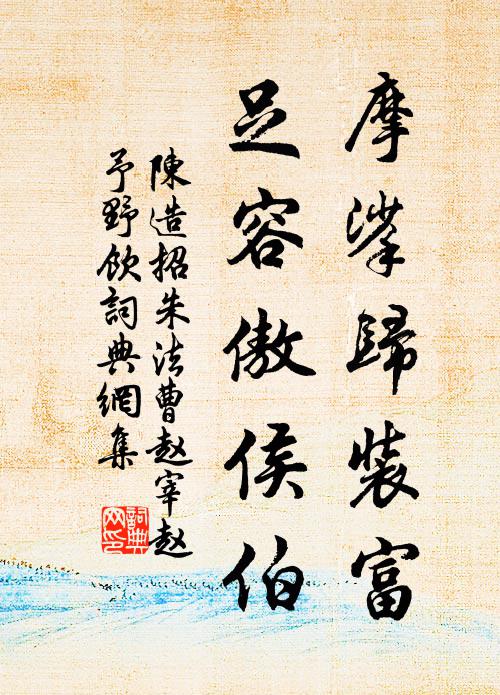 摩挲歸裝富
足容傲侯伯
陳造招朱法曹赵宰赵
予野飲詞典網集
詞典網印